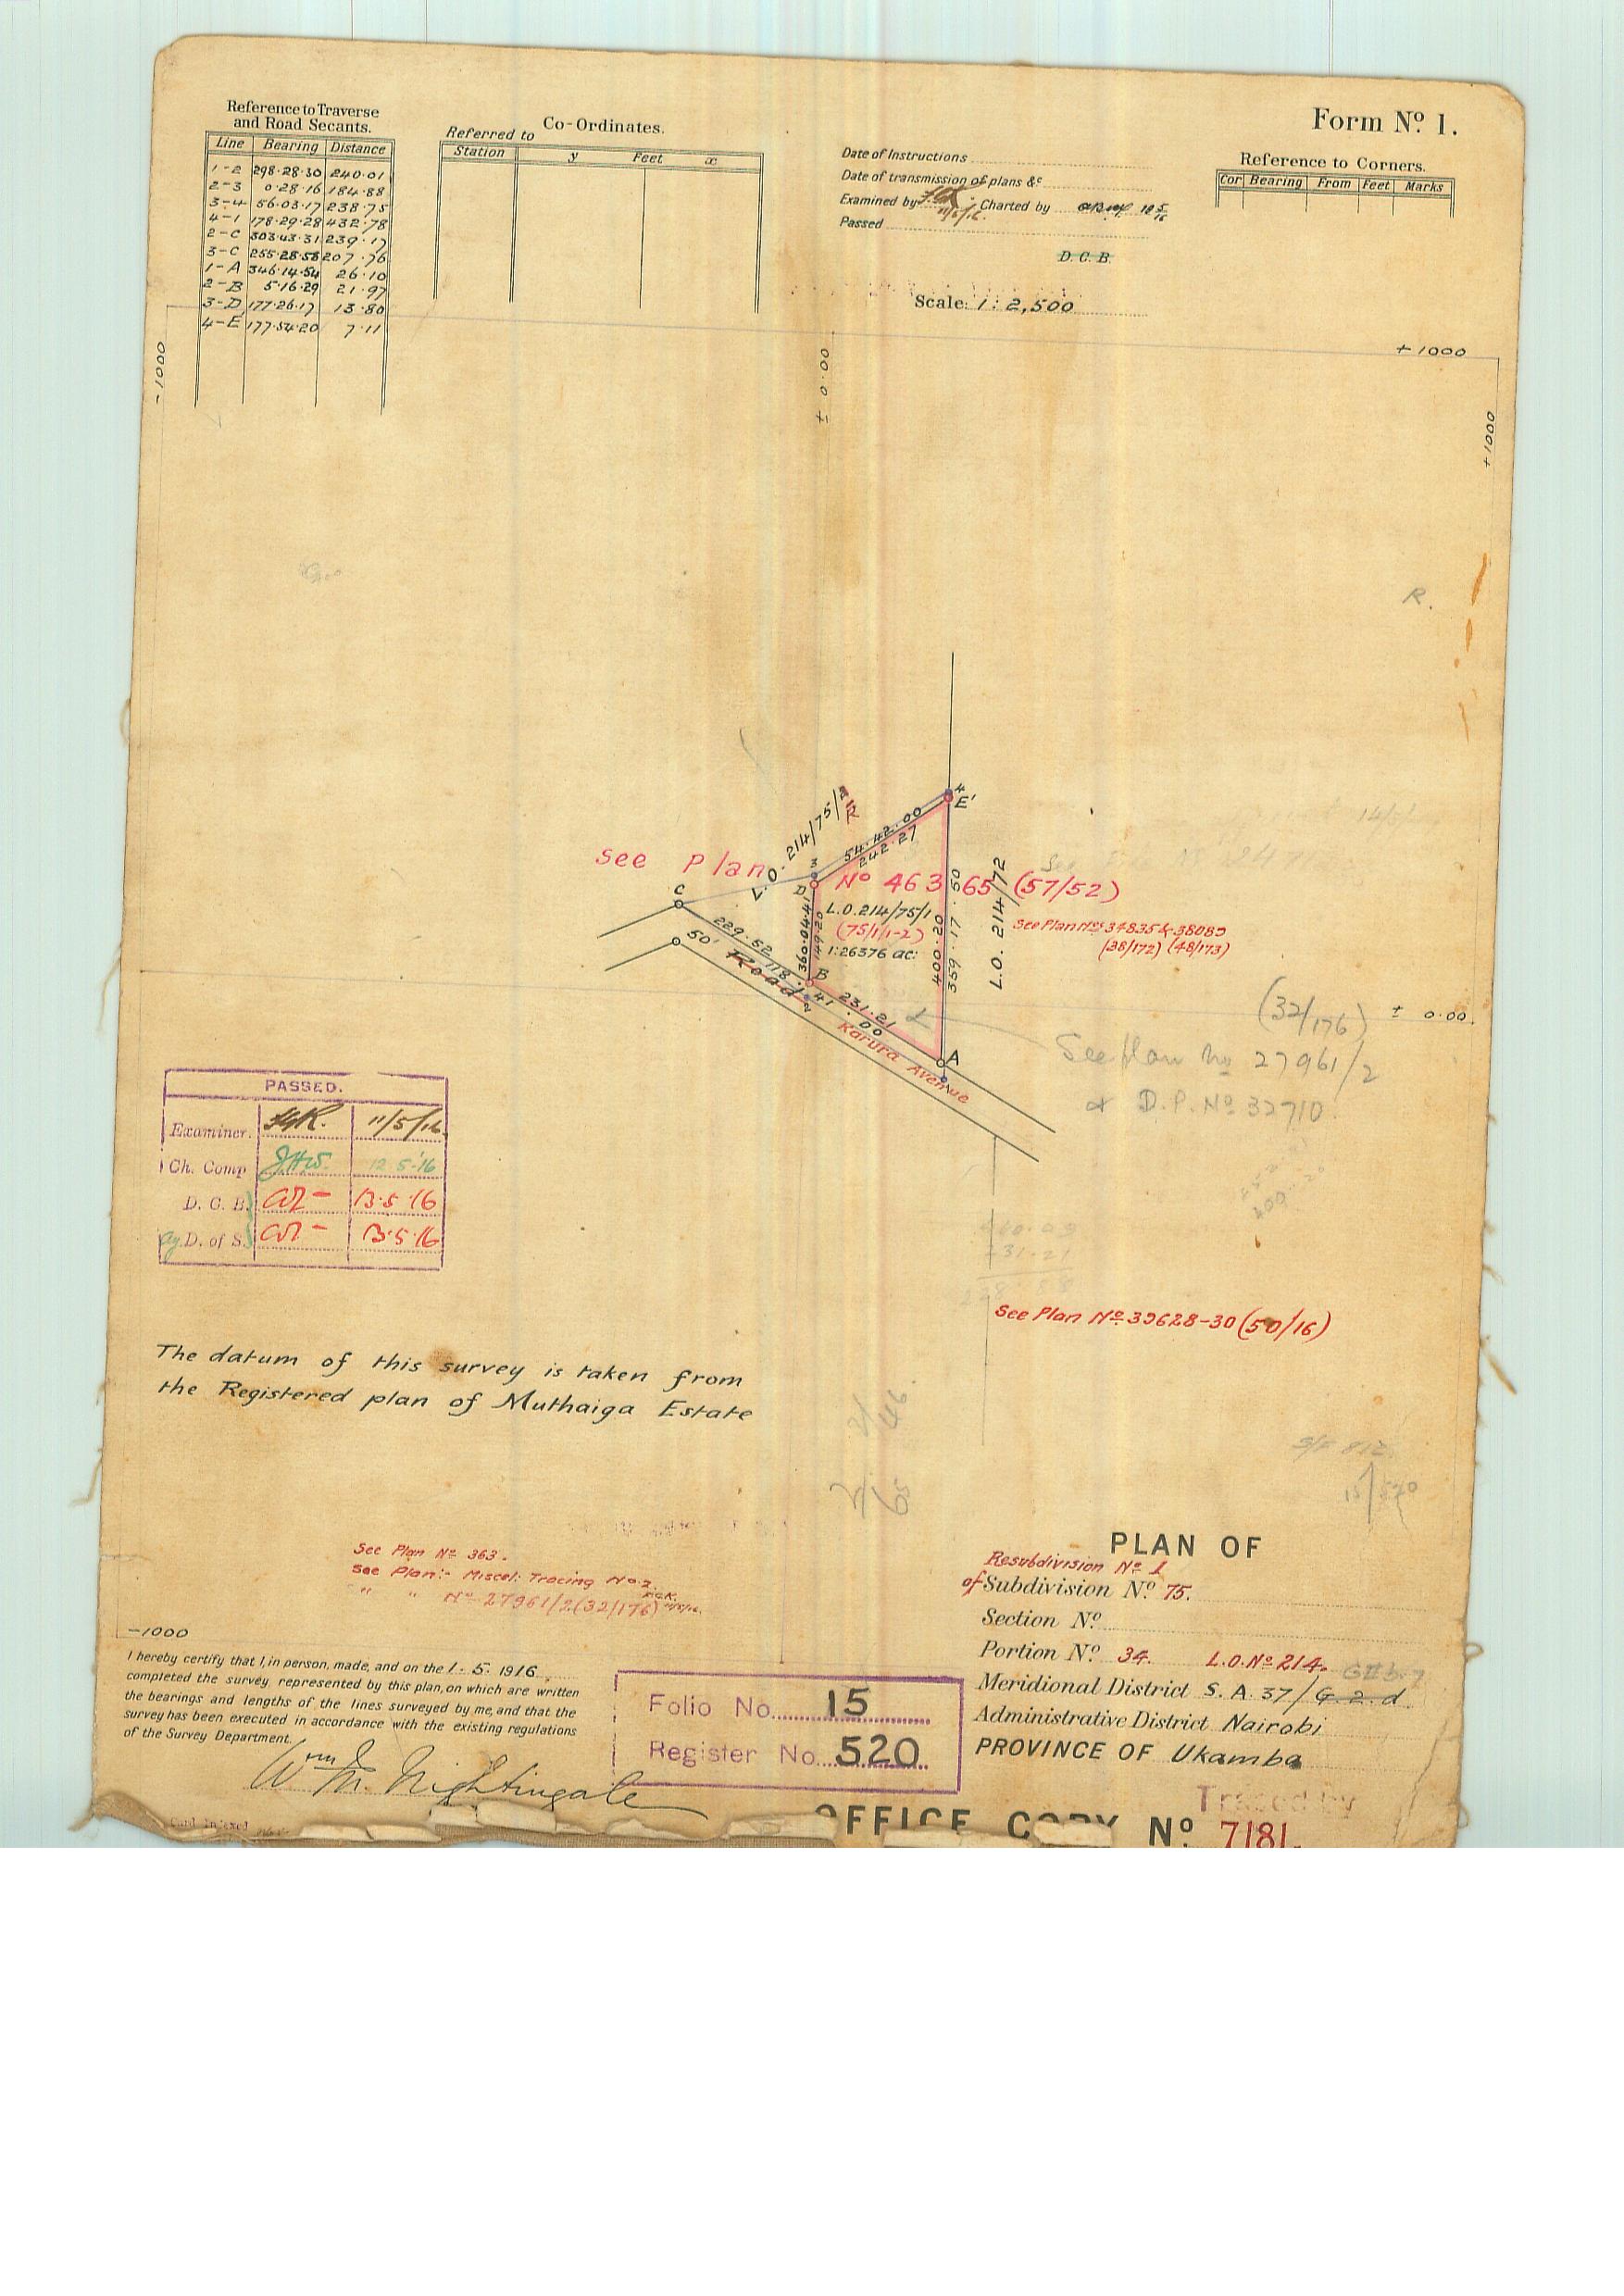 Form Nº 1.
Reference to Traverse
and Road Secants.
Line Bearing Distance
1-2 298·28·30 240·01
2-3 0·28·16 184·88
3-4 56·03·17 238·75
4-1 178·29·28 432·78
2-C 303·43·31 239·17
3-C 255·28·58 207·76
1-A 346·14·54 26·10
2-B 5·16·29 21·97
3-D 177·26·17 13·80
4-E 177·54·20 7·11
Co-Ordinates.
Referred to
Station y Feet x
Date of Instructions
Date of transmission of plans &c
Examined by 11/5/16. Charted by
Passed
D. C. B.
Scale: 1: 2,500
Reference to Corners.
Cor Bearing From Feet Marks
-1000
± 0·00
+1000
+1000
R.
4
E'
L.O. 214/75/
R
54·42·00
242·27
see Plan
Nº 463 65 (57/52)
3
D
C
L.O. 214/75/1
(75/1/1-2)
1·26376 ac:
360·04·41
149·20
400·20
359·17·50
L.O. 214/72
See Plan Nos 34835 & 38089
(38/172) (48/173)
229·52
118·41·00
50'
Road
B
2
231·21
Karura Avenue
A
1
(32/176)
± 0·00.
See plan No 27961/2
& D.P. Nº 32710.
PASSED.
Examiner. 11/5/16.
Ch. Comp J.H.W. 12·5·16
D. C. B. 13·5·16
Ag. D. of S. 13·5·16
See Plan Nº 39628-30 (50/16)
The datum of this survey is taken from
the Registered plan of Muthaiga Estate
S/F 812
15/520
See Plan Nº 363.
See Plan:- Miscel: Tracing Nº 2.
" " Nº 27961/2 (32/176)
-1000
PLAN OF
Resubdivision Nº 1
of Subdivision Nº 75.
Section Nº
Portion Nº 34. L.O. Nº 214.
Meridional District S.A. 37/G.2.d
Administrative District Nairobi
PROVINCE OF Ukamba
I hereby certify that I, in person, made, and on the 1. 5. 1916
completed the survey represented by this plan, on which are written
the bearings and lengths of the lines surveyed by me, and that the
survey has been executed in accordance with the existing regulations
of the Survey Department.
Wm M. Nightingale
Folio No. 15
Register No. 520
Traced by
OFFICE COPY Nº 7181.
Card Indexed